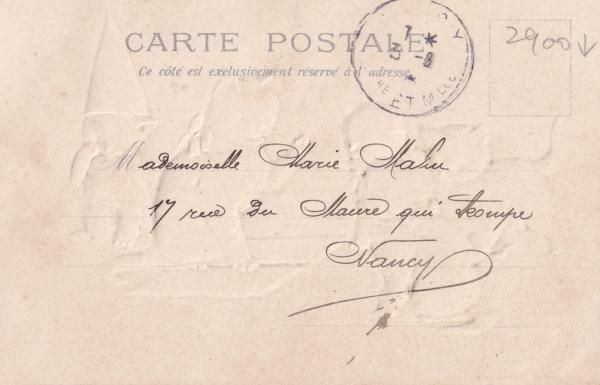 CARTE POSTALE
Ce côté est exclusivement réservé à l'adresse
2900
ET M
Mademoiselle Marie
17 rue Du Maure qui trompe
Nancy